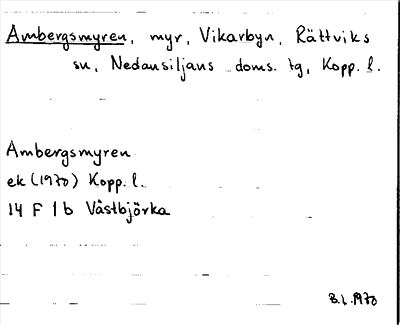 Ambergsmyren, myr, Vikarbyn, Rättviks
sn, Nedansiljans doms. tg, Kopp. l.
Ambergsmyren
ek (1970) Kopp. l.
14 F 1 b Västbjörka
B.L. 1970